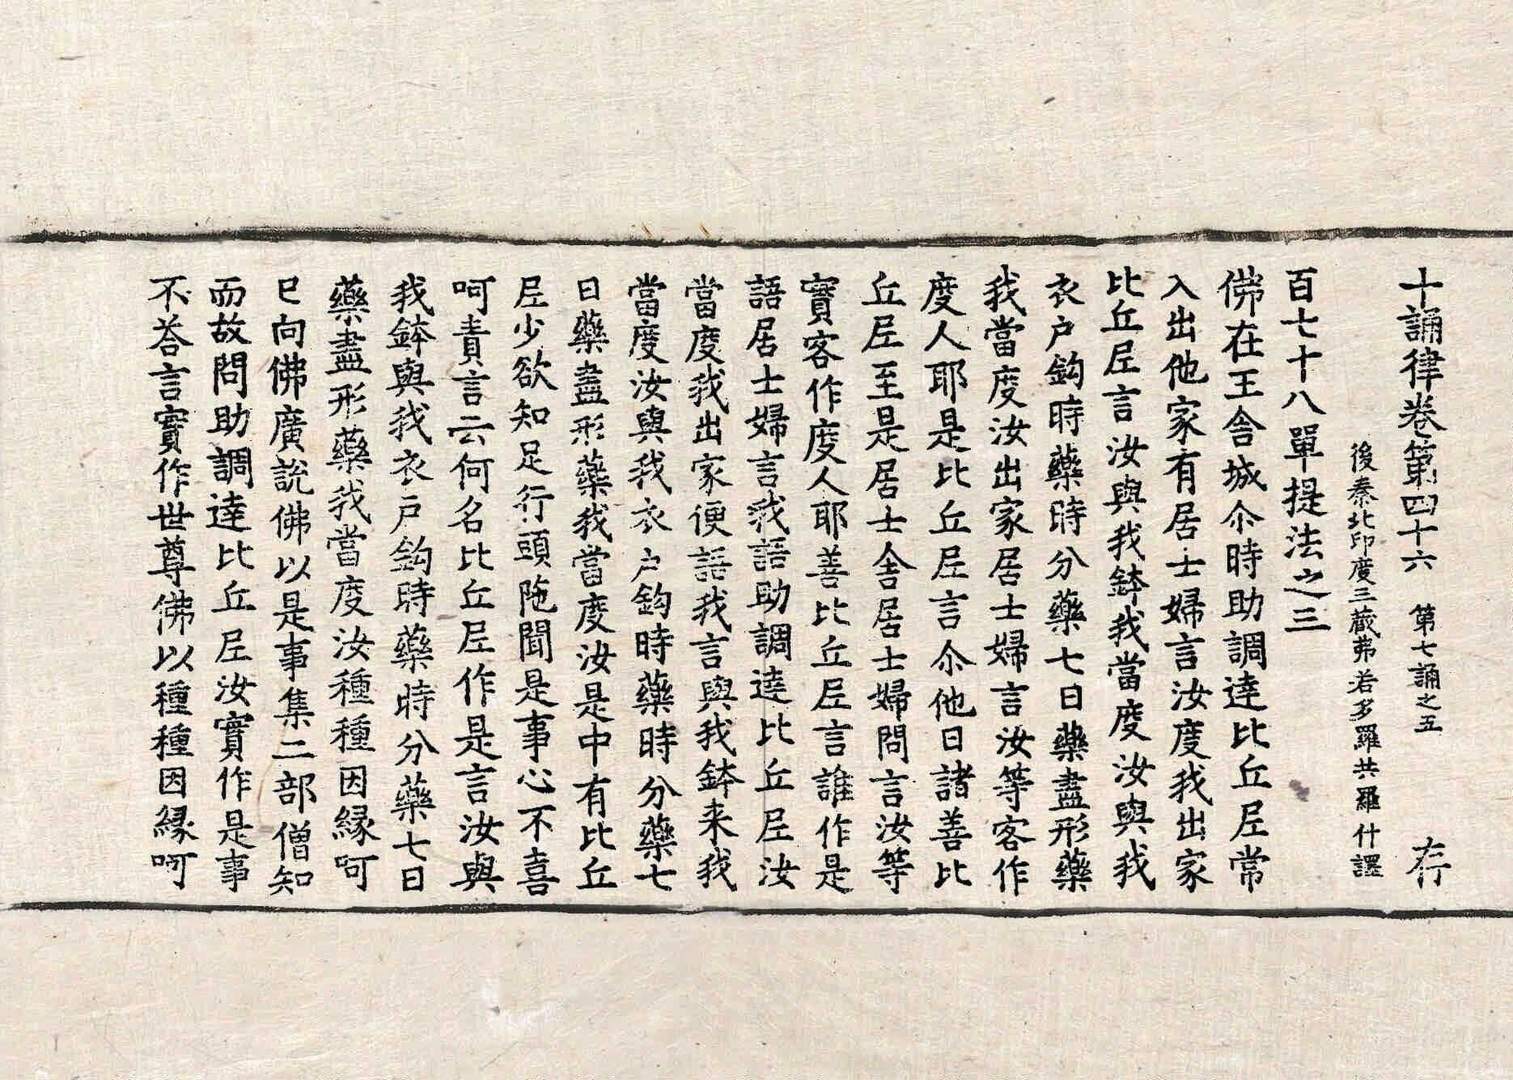 十誦律卷第四十六 第七誦之五 存
後秦北印度三藏弗若多羅共羅什譯
百七十八單提法之三
佛在王舍城尒時助調達比丘尼常
入出他家有居士婦言汝度我出家
比丘尼言汝與我鉢我當度汝與我
衣户鈎時藥時分藥七日藥盡形藥
我當度汝出家居士婦言汝等客作
度人耶是比丘尼言尒他日諸善比
丘尼至是居士舍居士婦問言汝等
實客作度人耶善比丘尼言誰作是
語居士婦言我語助調達比丘尼汝
當度我出家便語我言與我鉢来我
當度汝與我衣户鈎時藥時分藥七
日藥盡形藥我當度汝是中有比丘
尼少欲知足行頭陁聞是事心不喜
呵責言云何名比丘尼作是言汝與
我鉢與我衣户鈎時藥時分藥七日
藥盡形藥我當度汝種種因縁呵
已向佛廣說佛以是事集二部僧知
而故問助調達比丘尼汝實作是事
不荅言實作世尊佛以種種因縁呵